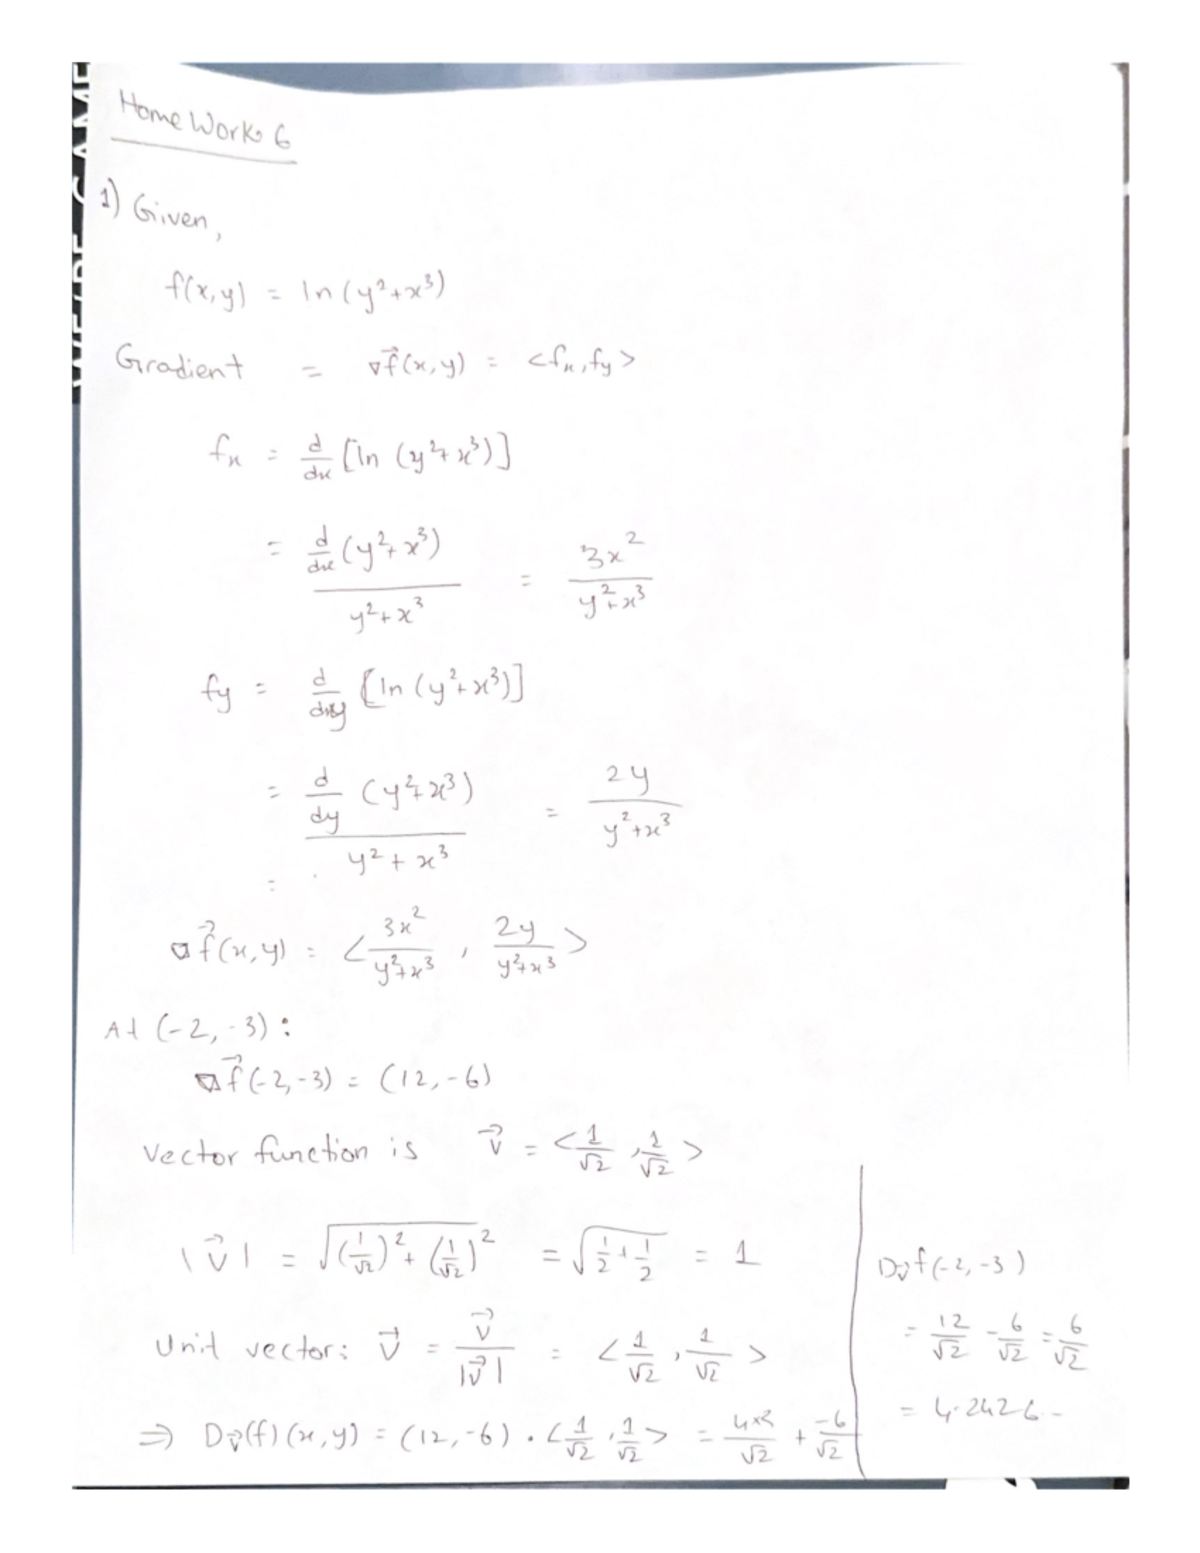 Home Work 6
1) Given,
f(x,y) = ln (y²+x³)
Gradient = ∇f⃗(x,y) = <fx, fy>
fx = d/dx [ln (y²+x³)]
= d/dx (y²+x³) / y²+x³ = 3x² / y²+x³
fy = d/dy [ln (y²+x³)]
= d/dy (y²+x³) / y²+x³ = 2y / y²+x³
=
∇f⃗(x,y) = < 3x² / y²+x³ , 2y / y²+x³ >
At (-2,-3):
∇f⃗(-2,-3) = (12,-6)
Vector function is v⃗ = <1/√2, 1/√2>
|v⃗| = √(1/√2)² + (1/√2)² = √1/2 + 1/2 = 1
Unit vector: v⃗ = v⃗/|v⃗| = <1/√2, 1/√2>
⇒ Dv⃗(f)(x,y) = (12,-6) · <1/√2, 1/√2> = 4×3/√2 + -6/√2
Dv⃗f(-2,-3)
= 12/√2 - 6/√2 = 6/√2
= 4.2426--